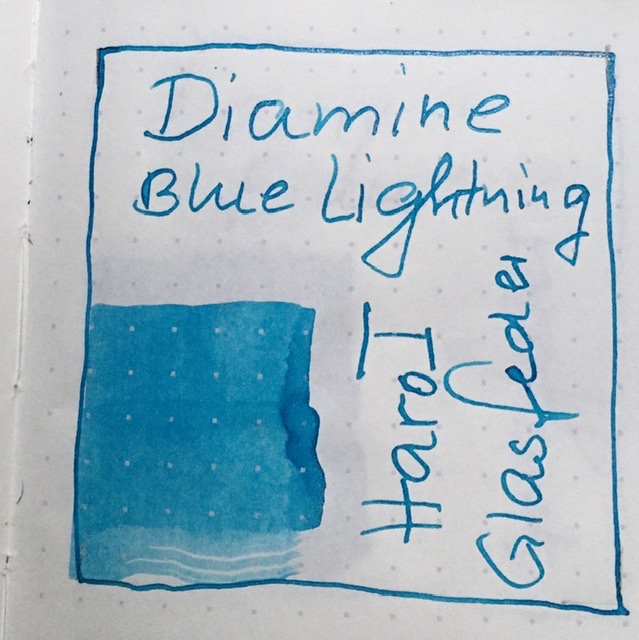 Diamine
Blue Lightning
Haro I
Glasfeder